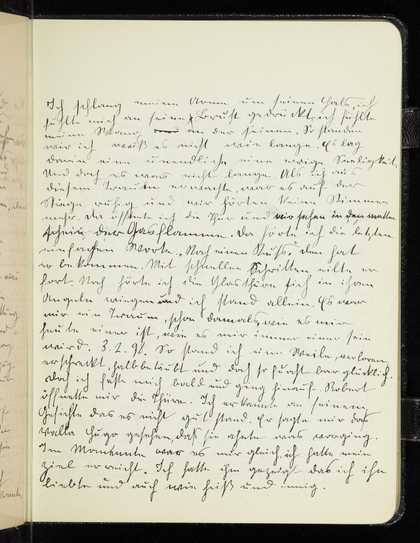 Ich schlang meine Arme um seinen Hals, ich
fühlte mich an seine Brust gedrückt, ich fühlte
meine Wange an der seinen. So standen
wir ich weiß es nicht wie lange. Es lag
darin eine unendliche eine ewige Seeligkeit.
Und doch es war nicht lange. Als ich aus
diesem Traum erwachte, war es auf der
Stiege ruhig und wir hörten keine Stimmen
mehr. Da öffnete ich die Thür und wir sahen in den matten
schein der Gasflamme. Da hörte ich die letzten
Worte. Noch einen Kuß. Den hat
er bekommen. Mit schnellen Schritten eilte er
fort. Noch hörte ich die Glasthüre sich in ihren
Angeln wiegen und ich stand allein. Es war
mir ein Traum, schon damals, wie es mir
heute einer ist, wie es mir immer einer sein
wird. 3.2.9 . So stand ich eine Weile verloren,
erschreckt, halb betäubt und doch so furchtbar glücklich.
doch ich faßte mich bald und ging hinauf. Robert
öffnete mir die Thüre. Ich erkannte an seinem
Gesichte das es nicht gut stand. Er sagte mir das
Hugo gesehen, daß sie was vorging.
Im Momente war es mir gleich, ich hatte mein
ziel erreicht. Ich hatte ihm gezeigt das ich ihn
liebte und auch wie heiß und innig.